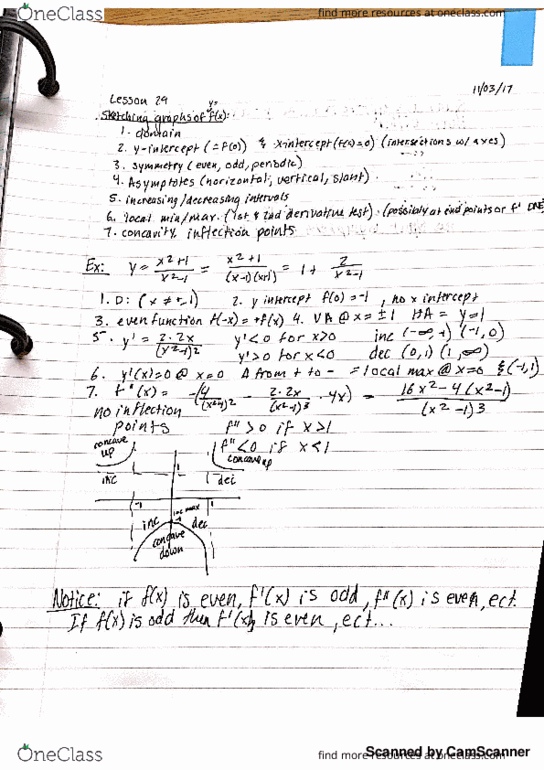 OneClass
find more resources at oneclass.com
11/03/17
Lesson 29
Sketching graphs of f(x):
1. domain
2. y-intercept (=f(0)) & x-intercept (f(x)=0) (intersections w/ axes)
3. symmetry (even, odd, periodic)
4. Asymptotes (horizontal, vertical, slant)
5. increasing/decreasing intervals
6. local min/max. (1st & 2nd derivative test). (possibly at end points or f' DNE)
7. concavity, inflection points
Ex: y = x²+1/x²-1 = x²+1/(x-1)(x+1) = 1 + 2/x²-1
1. D: (x ≠ ±1) 2. y intercept f(0)=-1, no x intercept
3. even function f(-x)=+f(x) 4. VA @ x = ±1 HA = y=1
5. y' = 2·2x/(x²-1)² y'<0 for x>0 inc (-∞,-1) (-1,0)
y'>0 for x<0 dec (0,1) (1,∞)
6. y'(x)=0 @ x=0 Δ from + to - = local max @ x=0 &(-1,1)
7. f"(x) = = 16x²-4(x²-1)/(x²-1)³
no inflection
points f">0 if x>1
f"<0 if x<1
concave up
concave up
inc
dec
-1
1
max
inc
dec
concave down
Notice: if f(x) is even, f'(x) is odd, f"(x) is even, ect.
If f(x) is odd then f'(x) is even, ect...
Scanned by CamScanner
OneClass
find more resources at oneclass.com